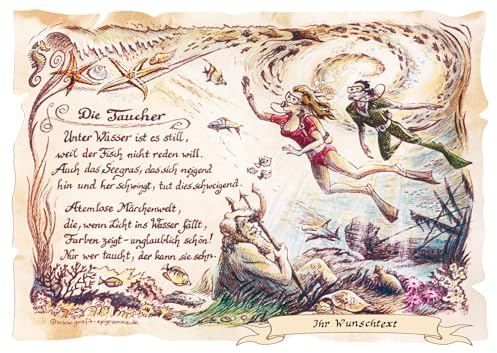 Die Taucher
Unter Wasser ist es still,
weil der Fisch nicht reden will.
Auch das Seegras, das sich neigend
hin und her schwingt, tut dies schweigend.
Atemlose Märchenwelt,
die, wenn Licht ins Wasser fällt,
Farben zeigt - unglaublich schön!
Nur wer taucht, der kann sie sehn.
©www.grafik-epigramme.de
Ihr Wunschtext